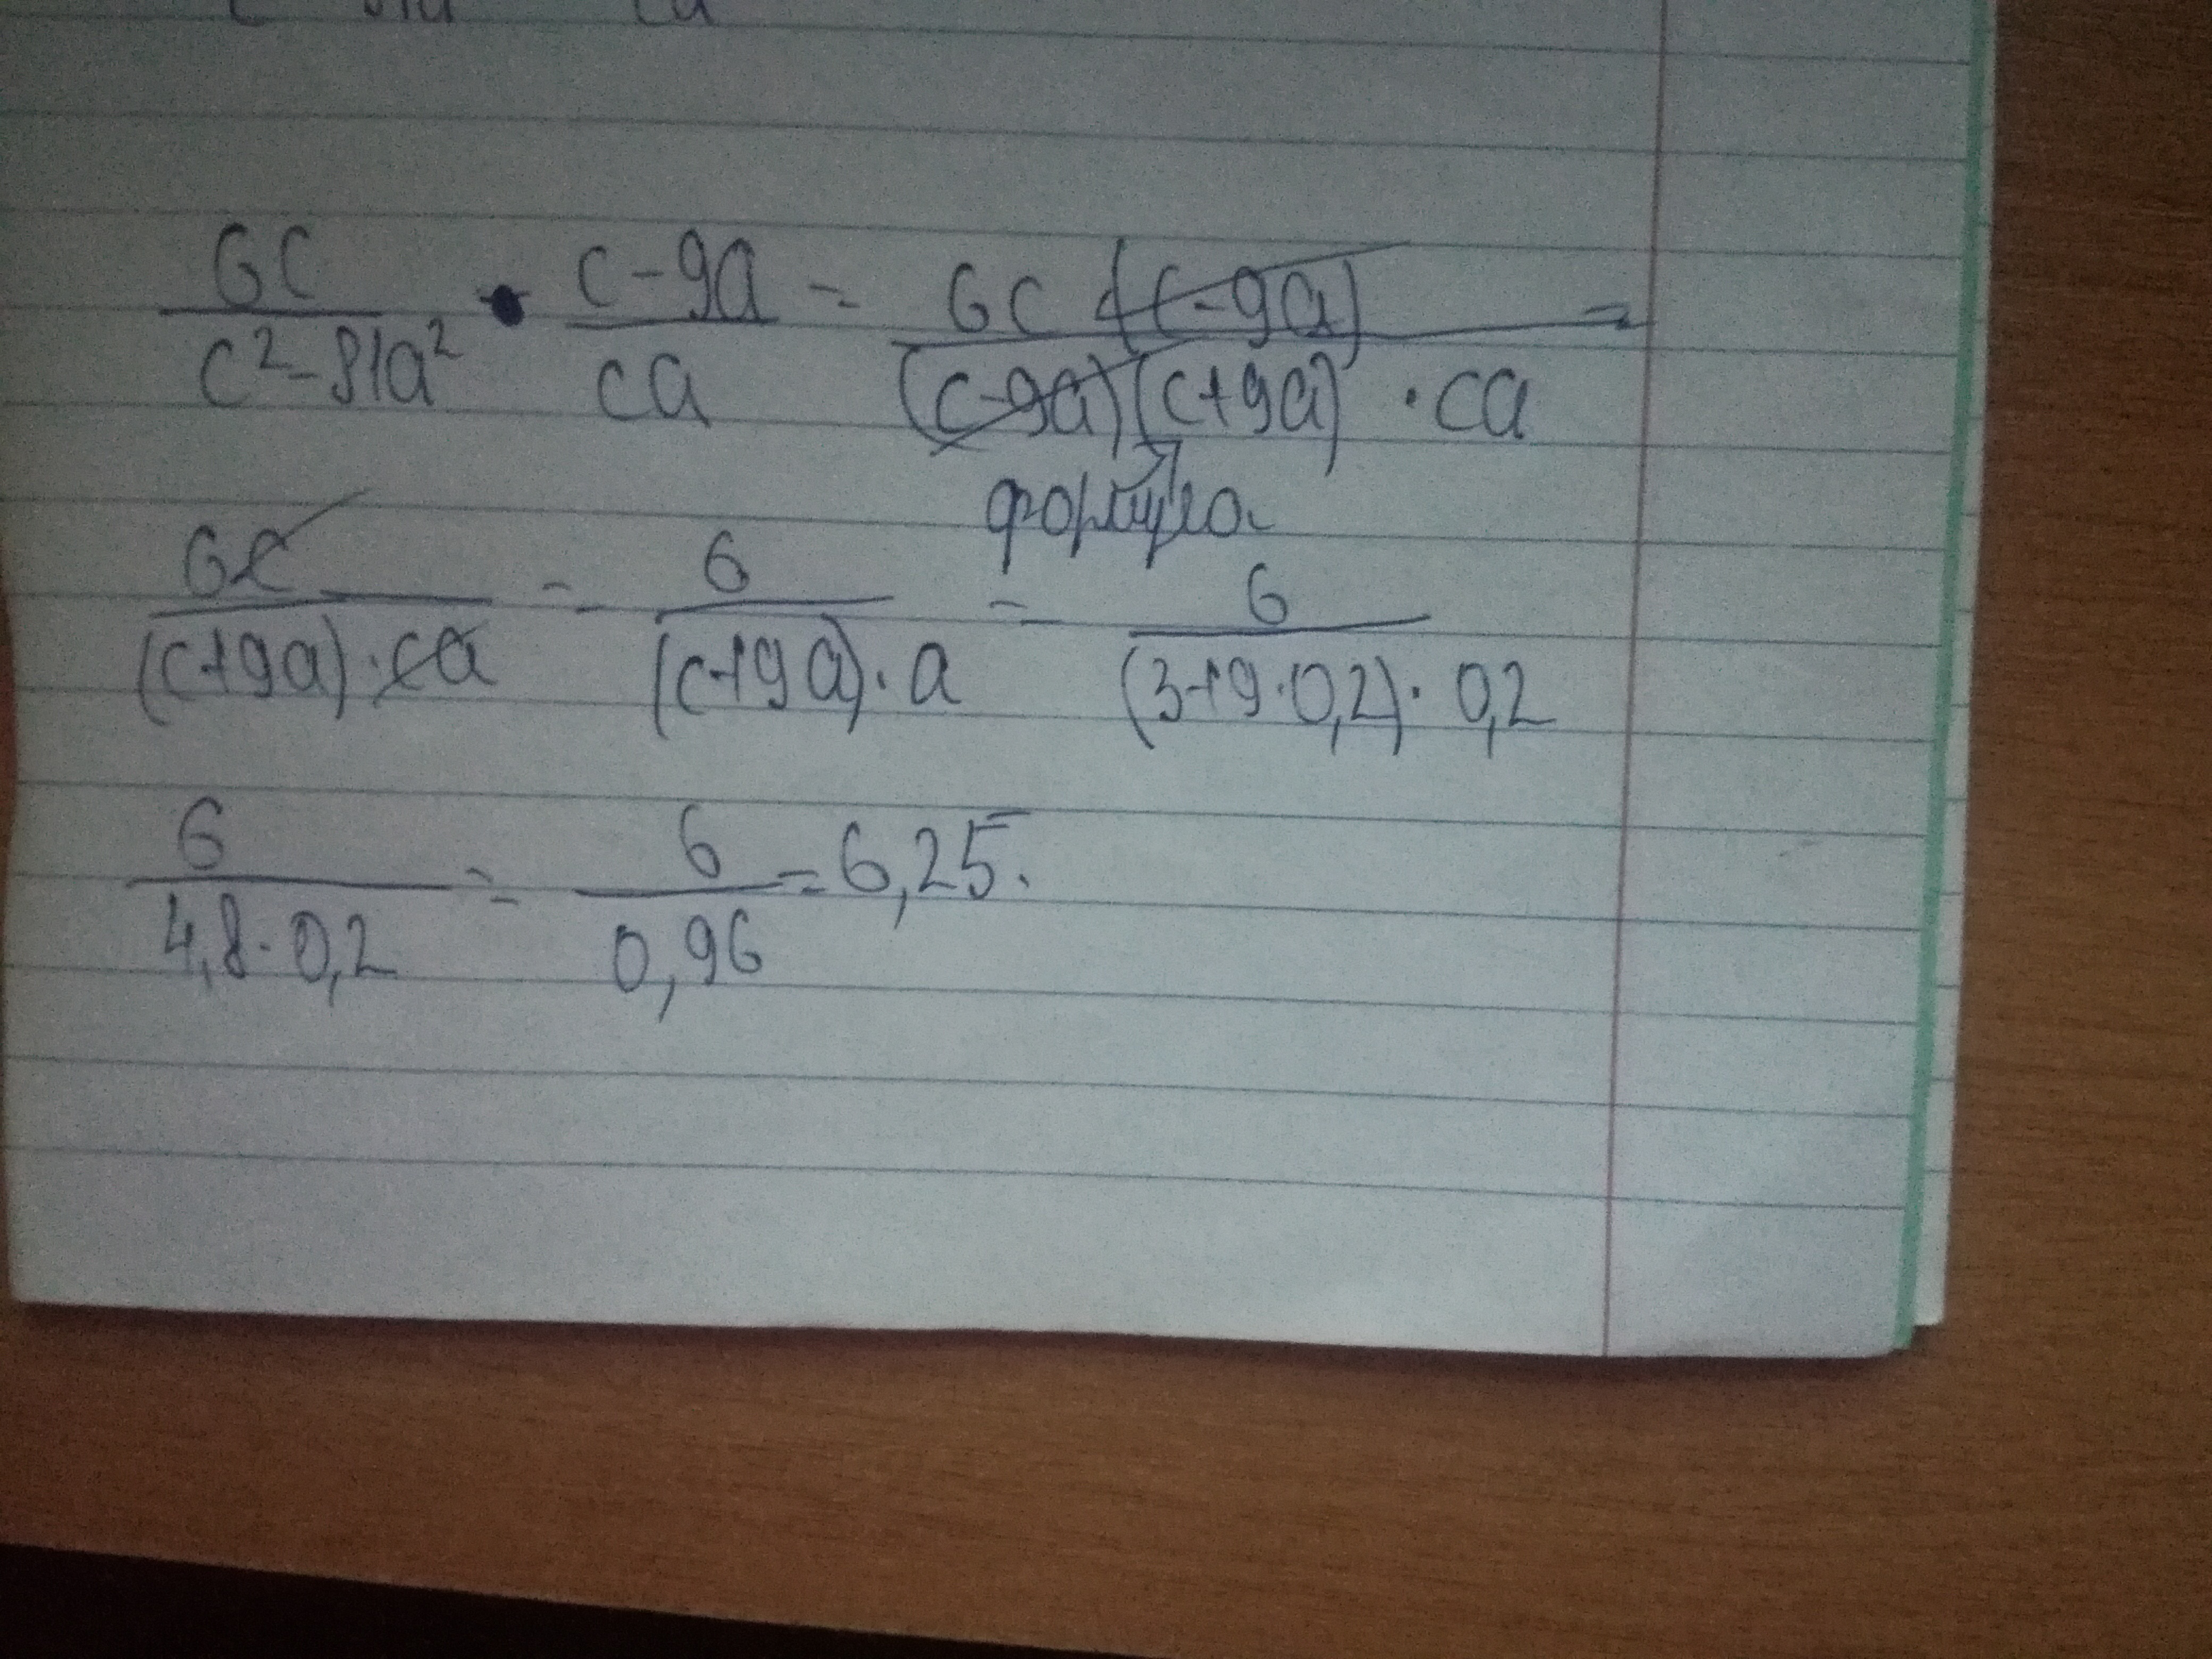 6c/(c²-81a²) • (c-9a)/ca = 6c·(c-9a)/((c-9a)(c+9a)·ca) =
формула
6c/((c+9a)·ca) = 6/((c+9a)·a) = 6/((3+9·0,2)·0,2)
6/(4,8·0,2) = 6/0,96 = 6,25.